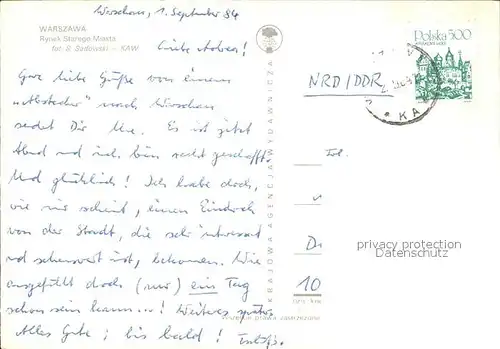 Warschau, 1. September 84
WARSZAWA
Rynek Starego Miasta
fot. S. Sadowski - KAW
Liebe
Ganz liebe Grüße von einem
"Abstecher" nach Warschau
sendet Dir Ute. Es ist jetzt
Abend und ich bin recht geschafft.
Und glücklich! Ich habe doch,
wie mir scheint, einen Eindruck
von der Stadt, die sehr interessant
und sehenswert ist, bekommen. Wie
ausgefüllt doch (nur) ein Tag
schon sein kann...! Weiteres später.
Alles Gute; bis bald!
KRAJOWA AGENCJA WYDAWNICZA
Polska 500
NRD/DDR
KA
Frl.
D
10
privacy protection
Datenschutz
Wszelkie prawa zastrzeżone